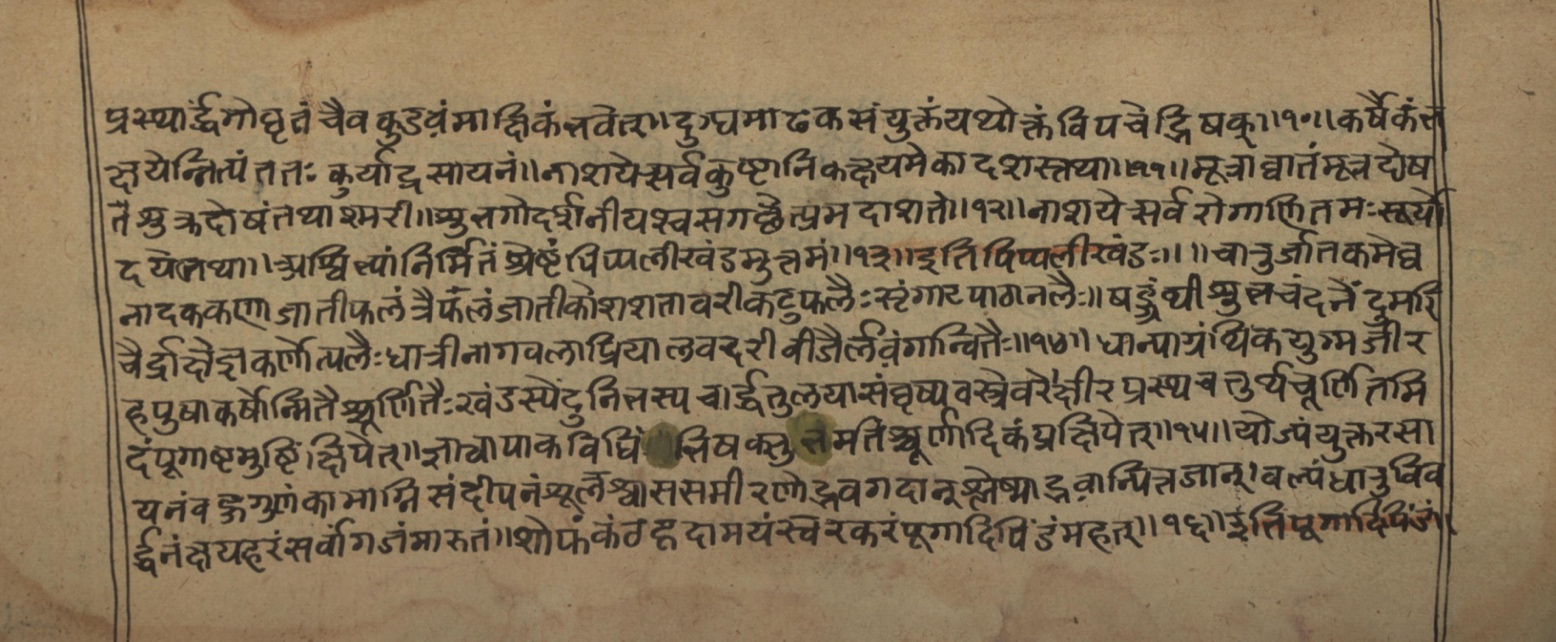 प्रस्थार्द्धंगोघृतं चैव कुडवंमाक्षिकंभवेत्॥दुग्धमाढकसंयुक्तंयथोक्तंविपचेद्भिषक्॥१०॥कर्षैकंभ
क्षयेन्नित्यं ततः कुर्याद्रसायनं॥नाशयेत्सर्वकुष्टानिकक्षयमेकादशस्तथा॥११॥मूत्राघातंमूत्रदोष
तैशुक्रदोषंतथाश्मरी॥शुभगोदर्शनीयश्चसगछेत्प्रमदाशते॥१२॥नाशयेत्सर्वरोगाणितमःसूर्यो
दयेतथा॥अश्विभ्यांनिर्मितंश्रेष्टंपिप्पलीखंडमुत्तमं॥१३॥इतिपिप्पलीखंडः॥॥चातुर्जातकमेघ
नादककणाजातीफलंत्रैफलंजातीकोशशतावरीकटुफलैःसृंगाटपाठानलैः॥षड्ग्रंथीशुभचंदनैंदुमरि
चैर्द्राक्षैज्ञकर्णोत्पलैःधात्रीनागवलाप्रियालवदरीवीजैर्लवंगान्वितैः॥१४॥धान्याग्रंथिकयुग्मजीर
हपुषाकर्षोन्मितैश्चूर्णितैःखंडस्येंदुनिभस्यचार्द्धतुलयासंघृष्यवस्त्रेवरेक्षीरप्रस्थचतुर्थचूर्णितमि
दंपूगाष्टमुष्टिंक्षिपेत्॥ज्ञात्वापाकविधिं भिषक्तु तमतिश्चूर्णादिकंप्रक्षिपेत्॥१५॥योज्यंयुक्तरसा
यनंवङ्गगुणंकामाग्निसंदीपनंशूलंश्वाससमीरणोद्भवगदान्श्लेष्माद्भवान्पित्तजान्।वल्यंधातुविव
र्द्धनंक्षयहरंसर्वांगजंमारुतं॥शोफंकंठहृदामयंस्वरकरंपूगादिपिंडंमहत्॥१६॥इतिपूगादिपिंडः॥